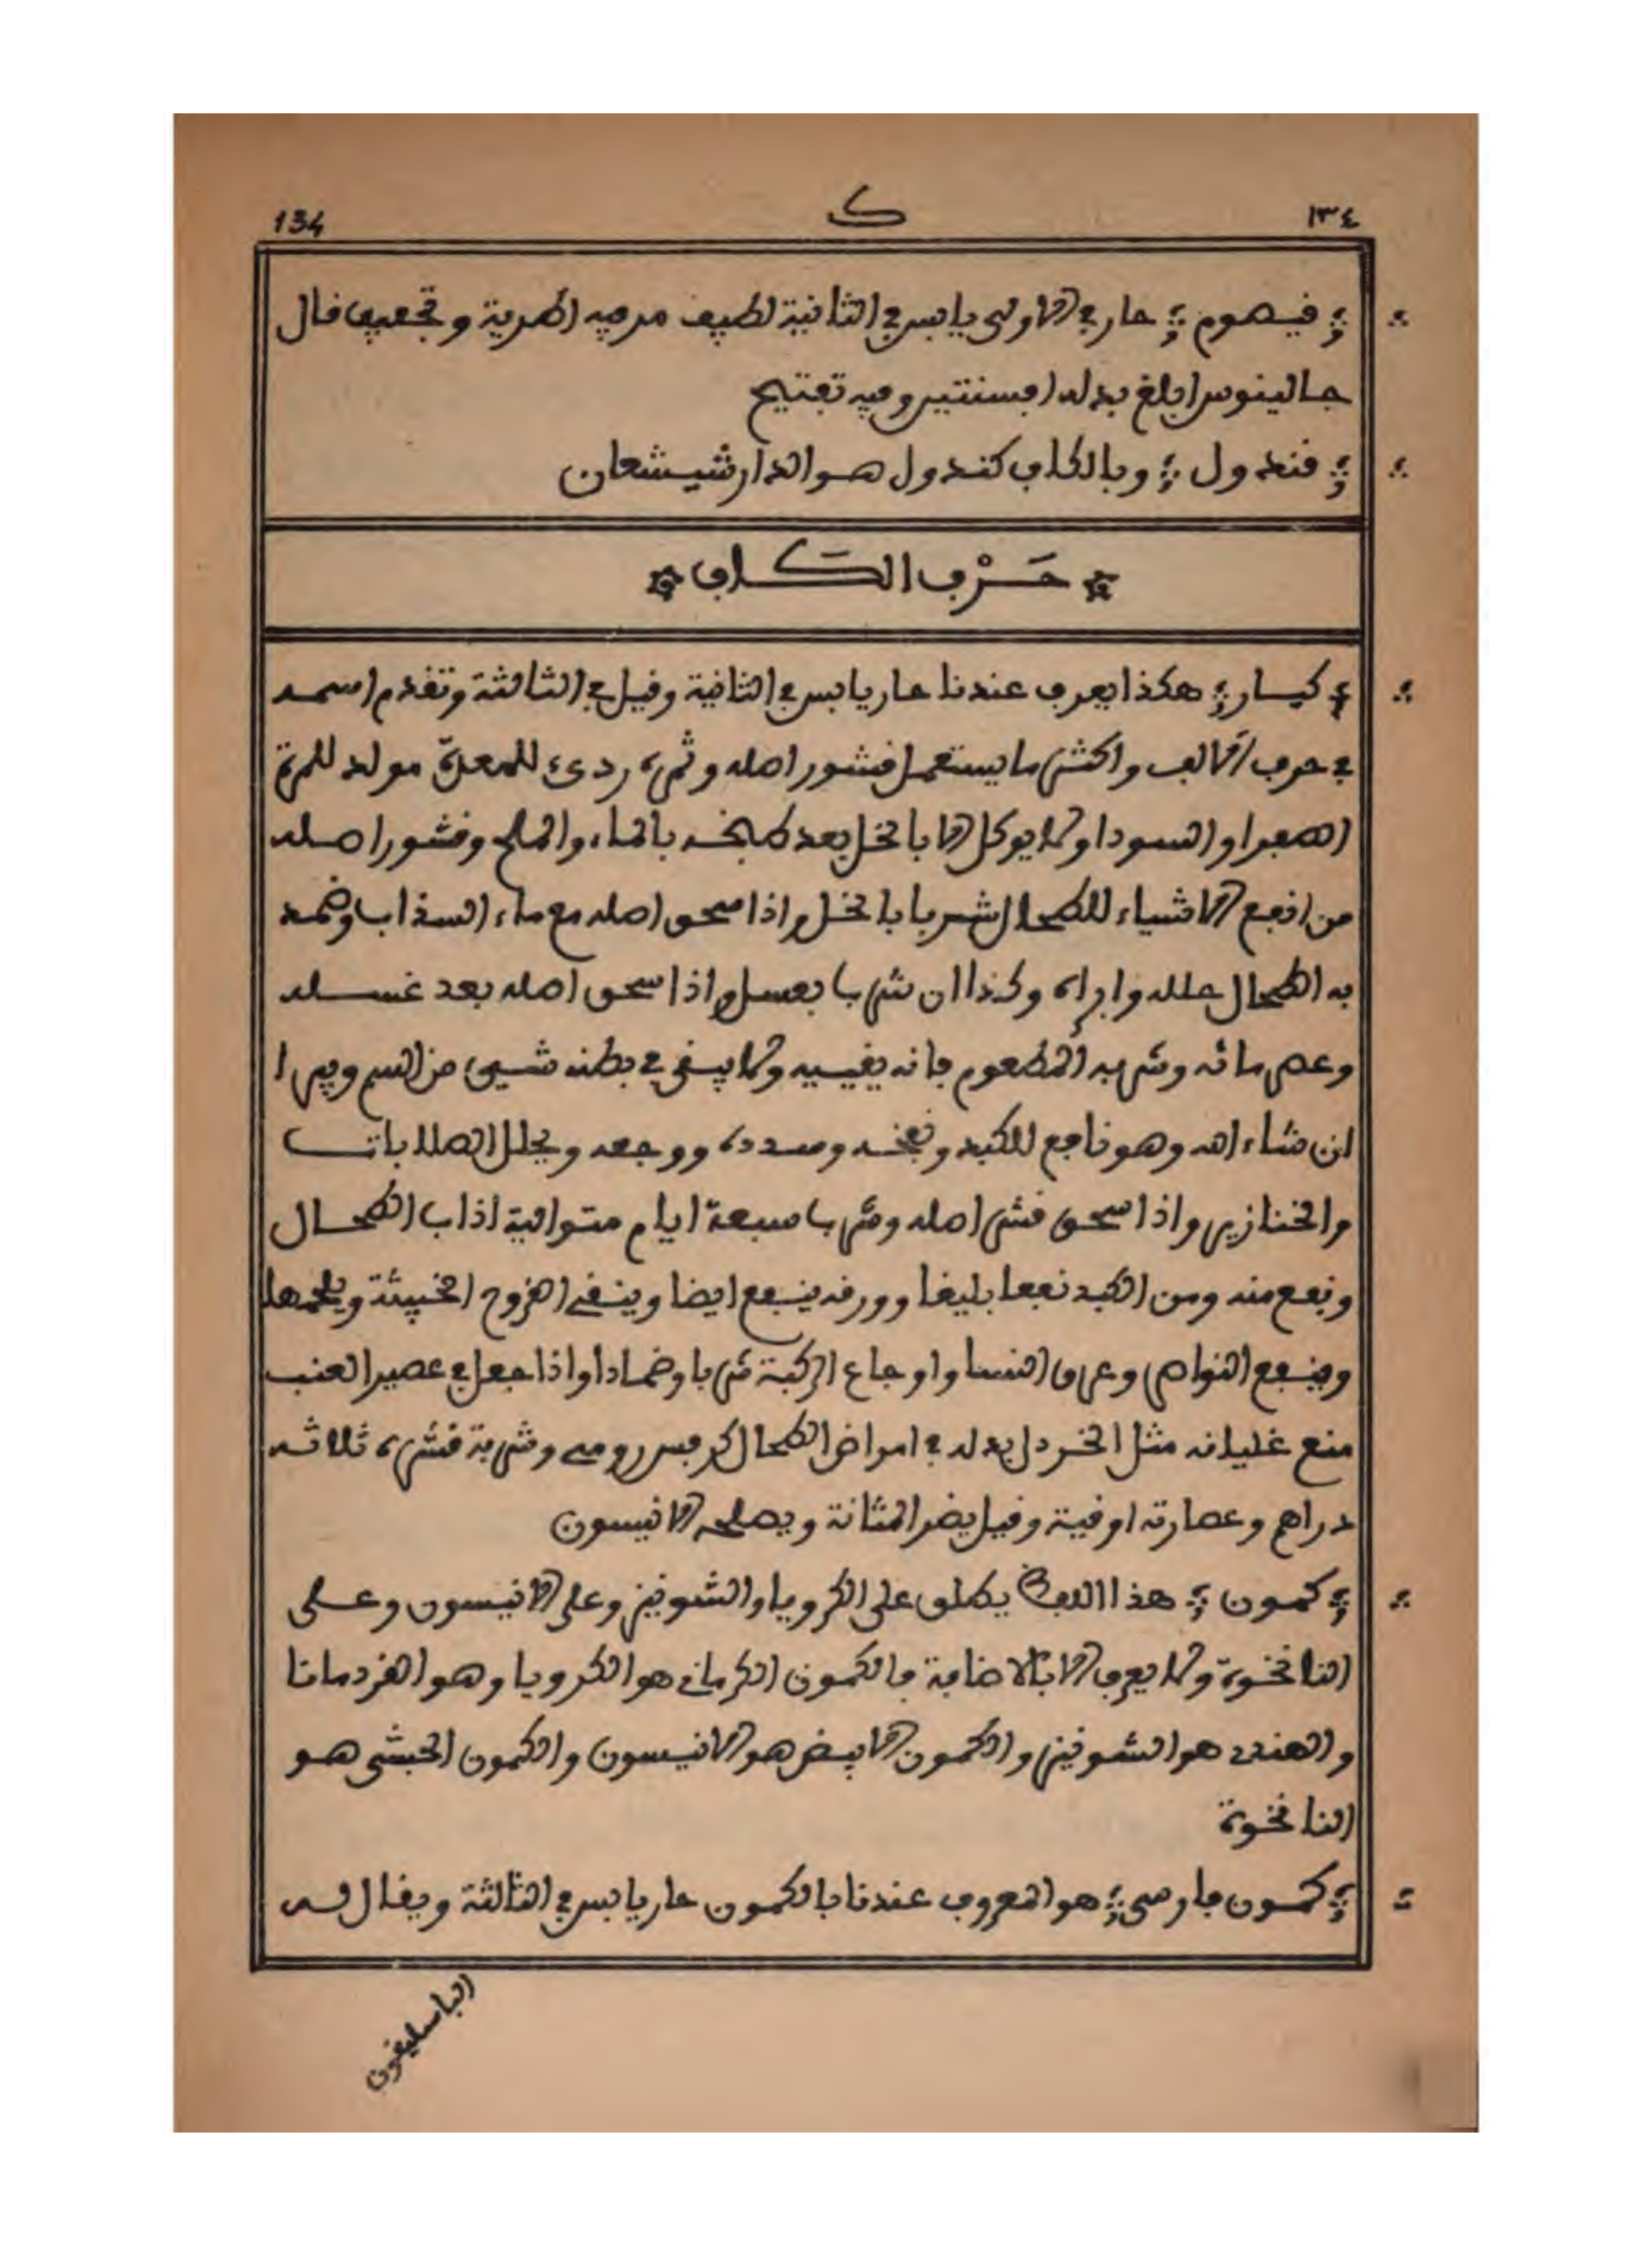 134 ك ١٣٤
قيصوم حار في الاولى يابس في الثانية لطيف مر فيه ارضية وتجفيف قال
جالينوس ابلغ بدله افسنتين وفيه تفتيح
قندول وبالكاف كندول هو الدارشيشعان
حَرْف الكَاف
كبار هكذا يعرف عندنا حار يابس في الثانية وقيل في الثالثة وتقدم اسمه
في حرف الالف واكثر ما يستعمل قشور اصله وثمره ردىء للمعدة مولد للمرة
الصفرا والسودا ولا يوكل الا بالخل بعد طبخه بالماء والملح وقشور اصله
من انفع الاشياء للطحال شربا بالخل واذا سحق اصله مع ماء السذاب وضمد
به الطحال حلله وابراه وكذا ان شربا بعسل واذا سحق اصله بعد غسله
وعصر مائه وشربه المطعوم فانه يقييه ولا يبقى في بطنه شيىء من السم ويبرا
ان شاء الله وهو نافع للكبد ونفخه وسدده ووجعه ويحلل الصلابات
والخنازير واذا سحق قشر اصله وشربا سبعة ايام متوالية اذاب الطحال
ونفع منه ومن الكبد نفعا بليغا وورقه ينفع ايضا وينقى القروح الخبيثة ويلحمها
وينفع النواصر وعرق النسا واوجاع الركبة شربا وضمادا واذا جعل في عصير العنب
منع غليانه مثل الخردل بدله في امراض الطحال كرفس رومى وشربة قشره ثلاثه
دراهم وعصارته اوقية وقيل يضر المثانة ويصلحه الانيسون
كمون هذا اللفظ يطلق على الكرويا والشونيز وعلى الانيسون وعلى
النانخوة ولا يعرف الا بالاضافة فالكمون الكرمانى هو الكرويا وهو القردمانا
والهندى هو الشونيز والكمون الابيض هو الانيسون والكمون الحبشى هو
النانخوة
كمون فارسى هو المعروف عندنا بالكمون حار يابس في الثالثة ويقال له
الباسليقون